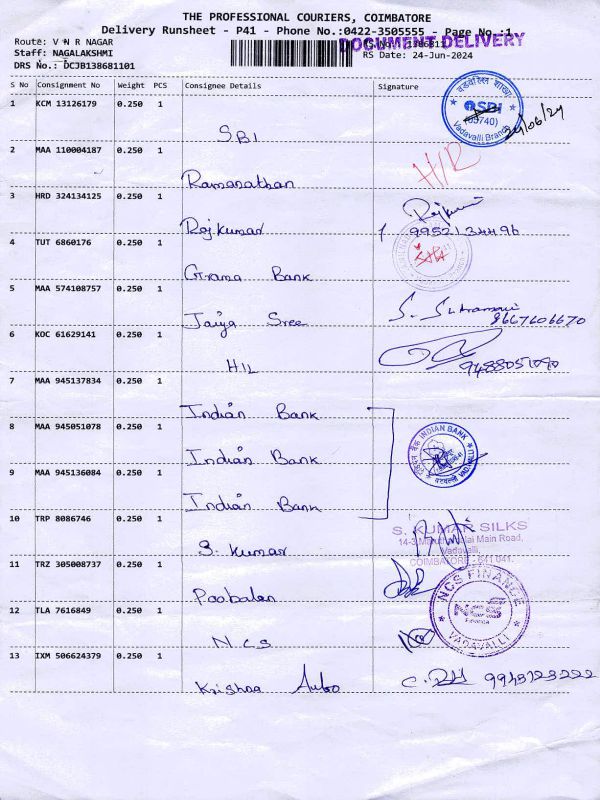 THE PROFESSIONAL COURIERS, COIMBATORE
Delivery Runsheet - P41 - Phone No.:0422-3505555 - Page No.:1
DOCUMENT DELIVERY
Route: V N R NAGAR
Staff: NAGALAKSHMI
RS Date: 24-Jun-2024
DRS No.: DCJB138681101
S No Consignment No Weight PCS Consignee Details Signature
1 KCM 13126179 0.250 1
SBI
वडवल्लि शाखा
SBI
(05740)
Vadavalli Branch
24/06/24
2 MAA 110004187 0.250 1
Ramanathan
H/R
3 HRD 324134125 0.250 1
Rajkumar
Rajkumar
9952134496
4 TUT 6860176 0.250 1
Grama Bank
5 MAA 574108757 0.250 1
Jaiya Sree
8667606670
6 KOC 61629141 0.250 1
HIL
9488051090
7 MAA 945137834 0.250 1
Indian Bank
8 MAA 945051078 0.250 1
Indian Bank
INDIAN BANK
9 MAA 945136084 0.250 1
Indian Bank
10 TRP 8086746 0.250 1
S. Kumar
S. KUMAR SILKS
Vadavalli,
COIMBATORE - 641 041.
11 TRZ 305008737 0.250 1
Poobalan
12 TLA 7616849 0.250 1
N.C.S
NCS FINANCE
VADAVALLI
13 IXM 506624379 0.250 1
Krishna Auto
9943123222